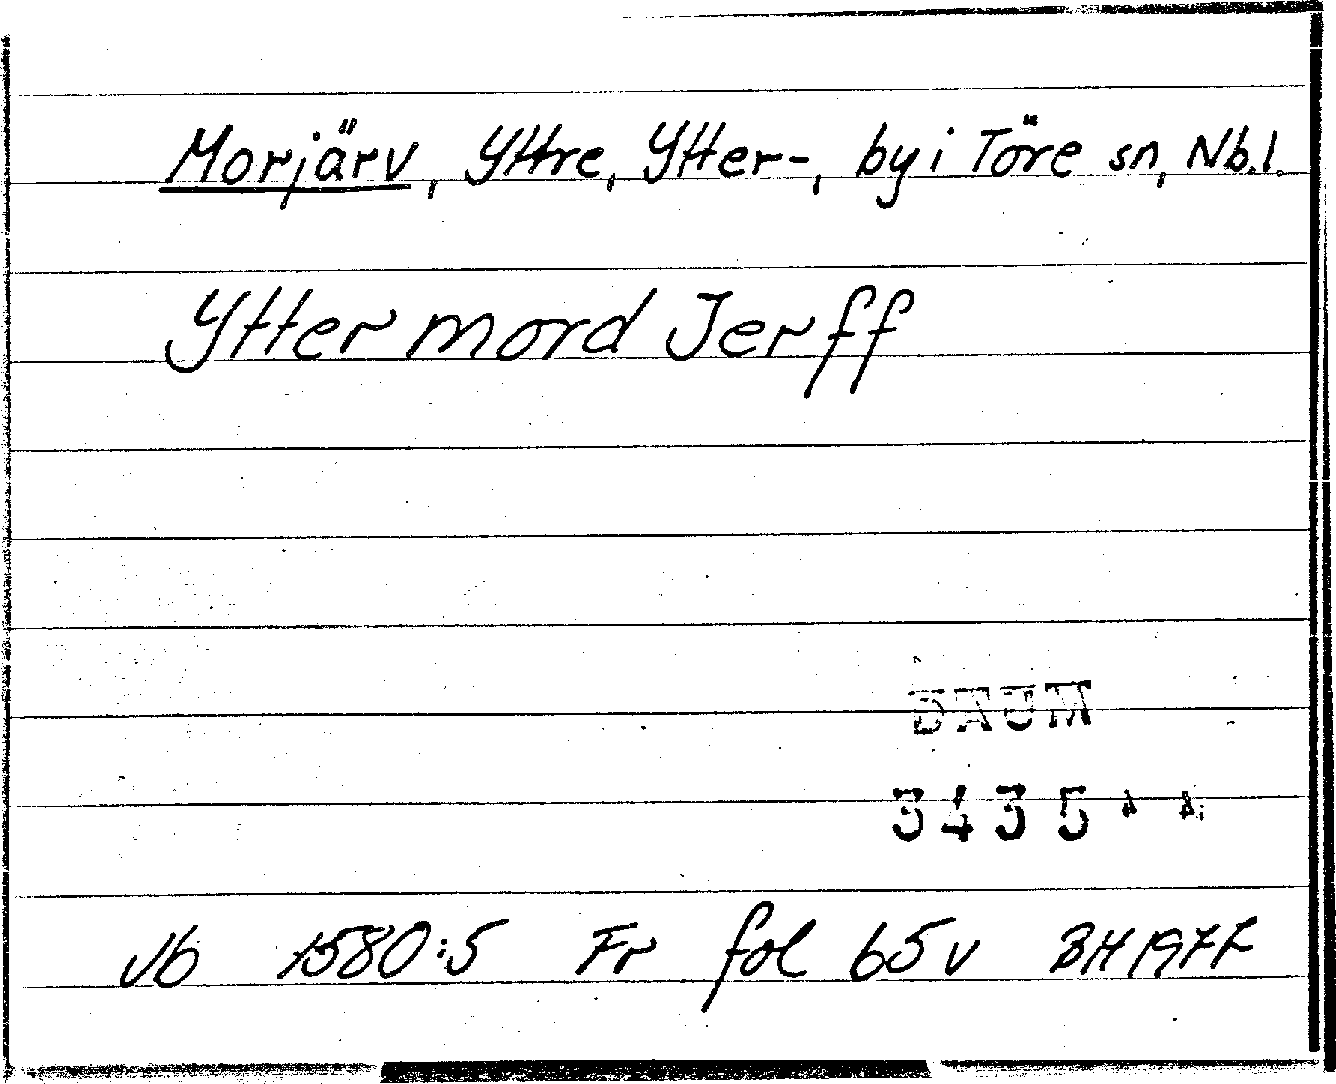 Morjärv, Yttre, Ytter-, by i Töre sn, Nb.l.
Ytter mord Jerff
DAUM
3435
Jb 1580:5 Fr fol 65 v BH 1977